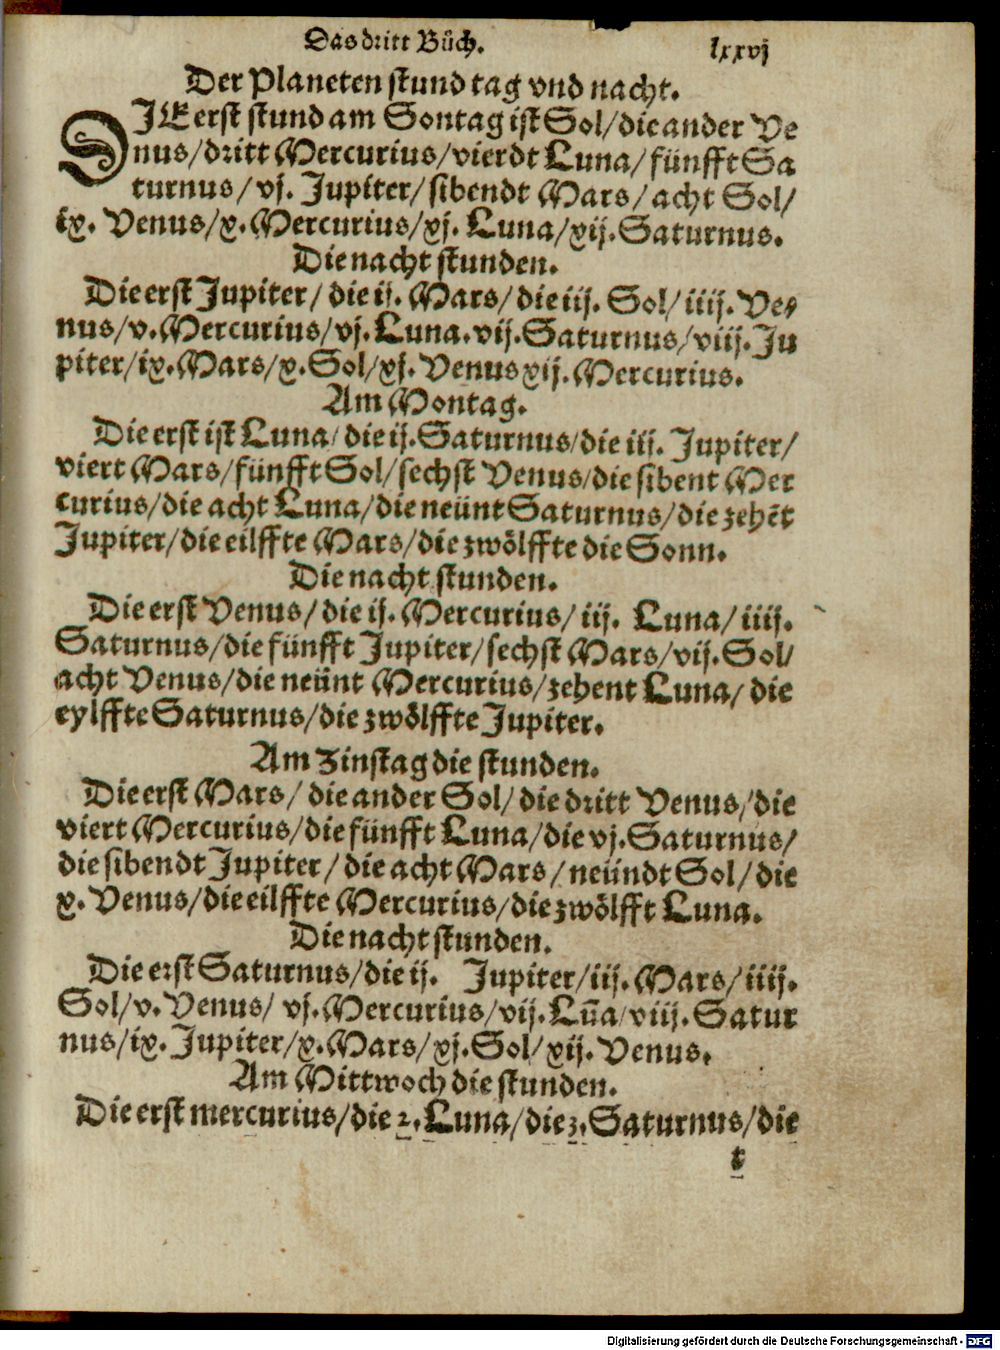 Das dritt Bůch. lxxvj
Der Planeten stund tag vnd nacht.
DIE erst stund am Sontag ist Sol/die ander Ve
nus/dritt Mercurius/vierdt Luna/fünfft Sa
turnus/vj. Jupiter/sibendt Mars/acht Sol/
ix. Venus/x. Mercurius/xj. Luna/xij. Saturnus.
Die nacht stunden.
Die erst Jupiter/die ij. Mars/die iij. Sol/iiij. Ve⸗
nus/v. Mercurius/vj. Luna. vij. Saturnus/viij. Ju
piter/ix. Mars/x. Sol/xj. Venus xij. Mercurius.
Am Montag.
Die erst ist Luna/die ij. Saturnus/die iij. Jupiter/
viert Mars/fünfft Sol/sechst Venus/die sibent Mer
curius/die acht Luna/die neünt Saturnus/die zehēt
Jupiter/die eilffte Mars/die zwölffte die Sonn.
Die nacht stunden.
Die erst Venus/die ij. Mercurius/iij. Luna/iiij.
Saturnus/die fünfft Jupiter/sechst Mars/vij. Sol/
acht Venus/die neünt Mercurius/zehent Luna/die
eylffte Saturnus/die zwölffte Jupiter.
Am Zinstag die stunden.
Die erst Mars/die ander Sol/die dritt Venus/die
viert Mercurius/die fünfft Luna/die vj. Saturnus/
die sibendt Jupiter/die acht Mars/neündt Sol/die
x. Venus/die eilffte Mercurius/die zwölfft Luna.
Die nacht stunden.
Die erst Saturnus/die ij. Jupiter/iij. Mars/iiij.
Sol/v. Venus/vj. Mercurius/vij. Lūa/viij. Satur
nus/ix. Jupiter/x. Mars/xj. Sol/xij. Venus.
Am Mittwoch die stunden.
Die erst mercurius/die 2. Luna/die 3. Saturnus/die
t
Digitalisierung gefördert durch die Deutsche Forschungsgemeinschaft - DFG